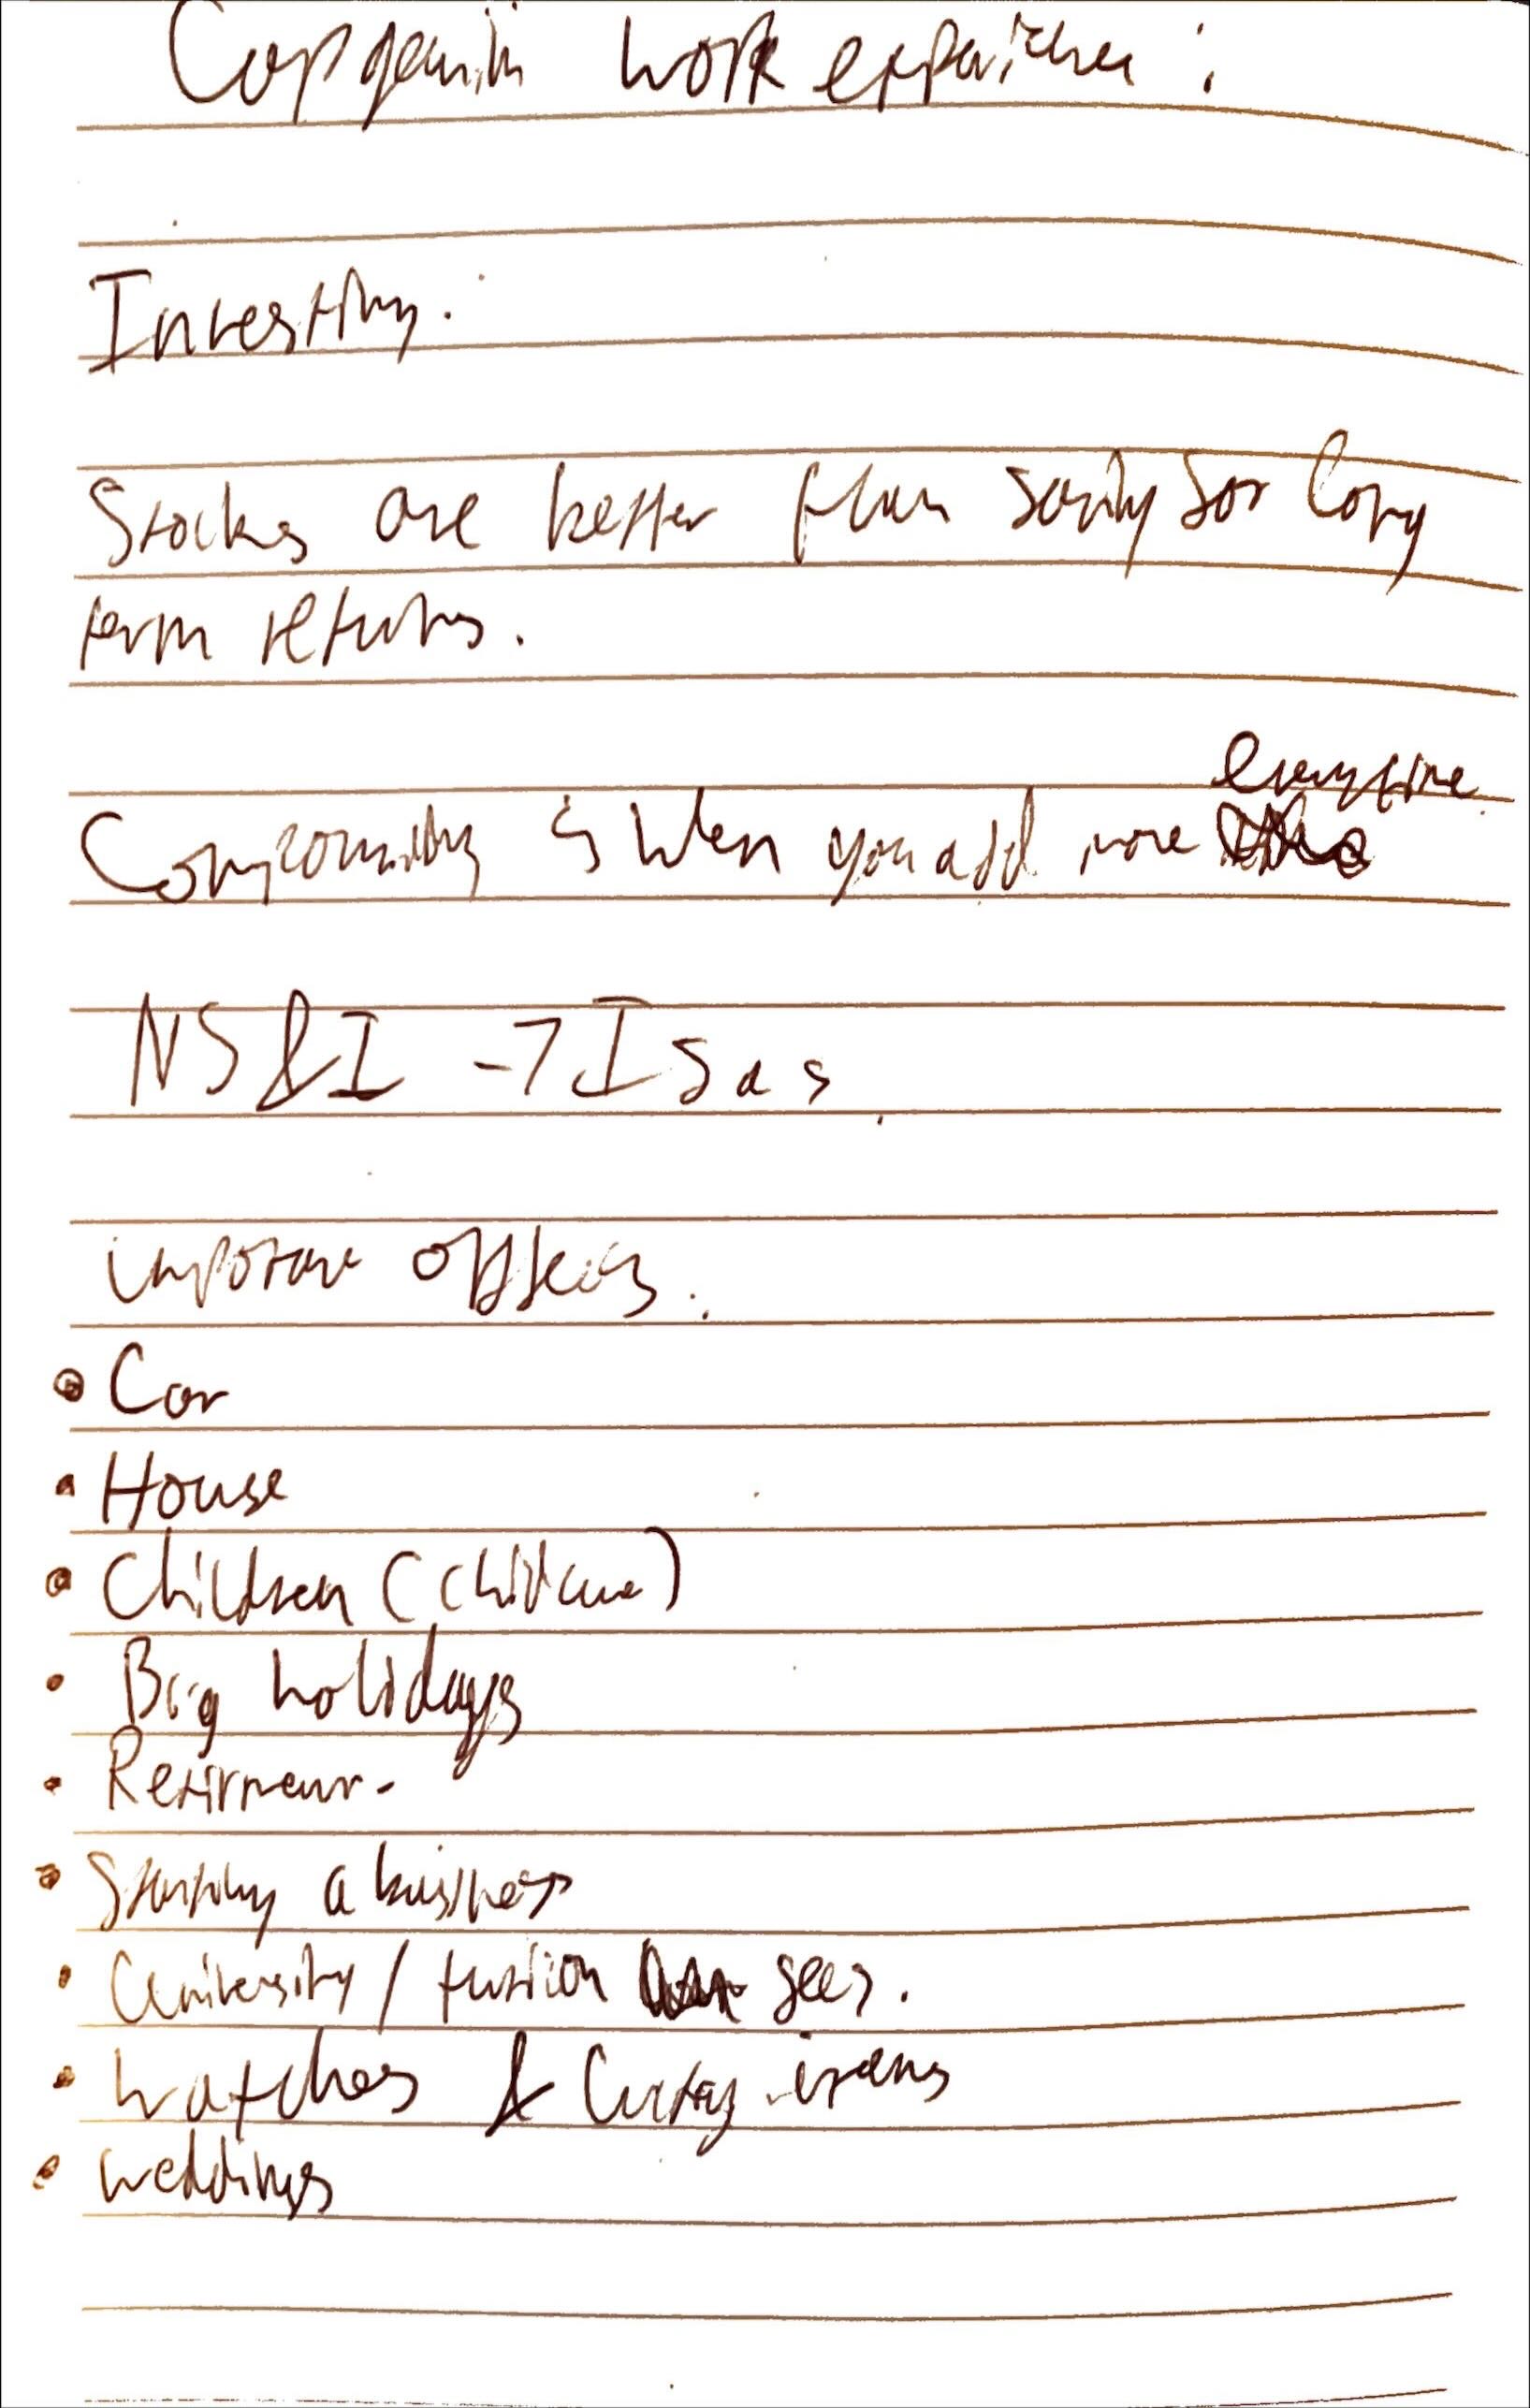 Capgemini work experience :
Investing.
Stocks are better than saving for long
term returns.
everytime
Compounding is when you add more
NS&I -> Isas
important
• Car
• House
• Children (childcare)
• Big holidays
• Retirment-
• Starting a business
• University / tuition fees.
• Watches & luxury items
• weddings